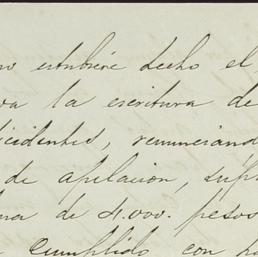 estubiere hecho el
la escritura de
cidentes, renunciand
de apelacion, súpl
ma de 4.000. pesos
cumplido con